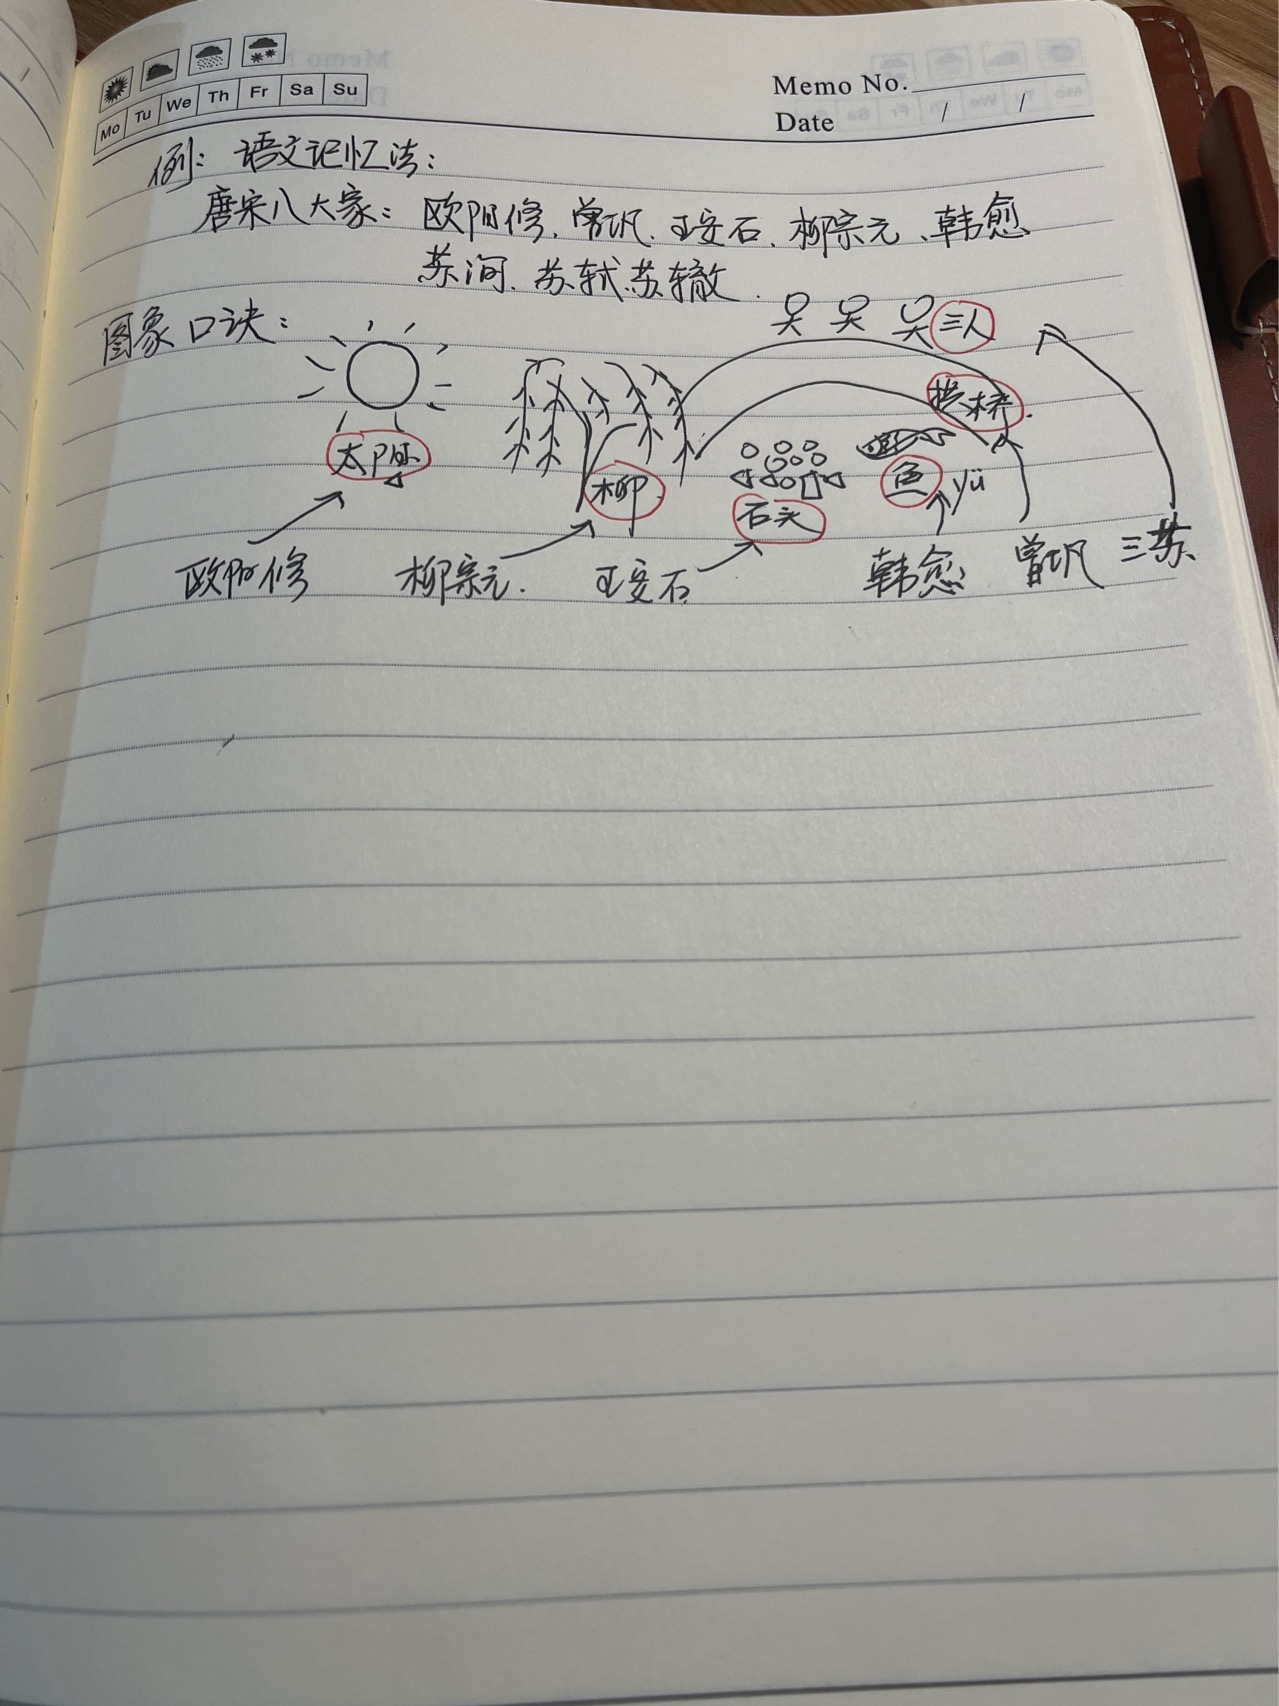 Mo Tu We Th Fr Sa Su
Memo No.
Date / /
例：语文记忆法：
唐宋八大家：欧阳修、曾巩、王安石、柳宗元、韩愈
苏洵、苏轼、苏辙
图象口诀：
三人
拱桥
太阳
柳
石头
鱼 yü
欧阳修 柳宗元 王安石 韩愈 曾巩 三苏